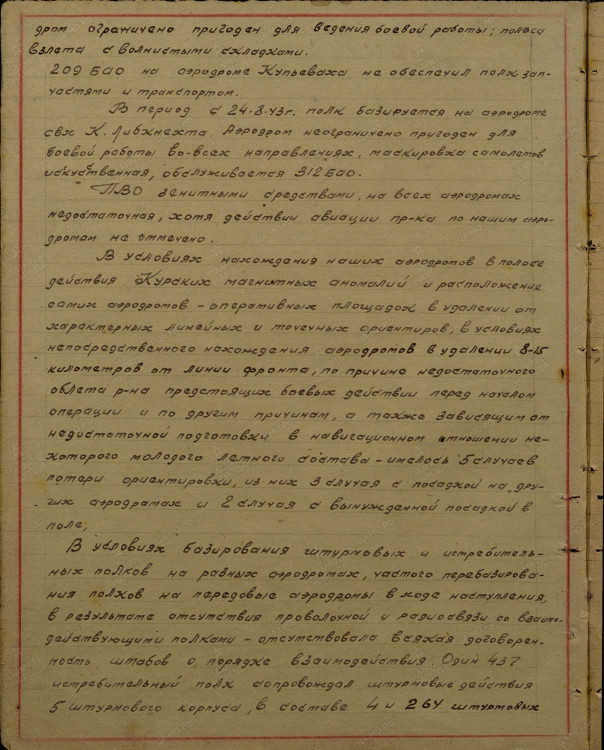 дром ограничено пригоден для ведения боевой работы; полоса
взлета с волнистыми складками.
209 БАО на аэродроме Купьеваха не обеспечил полк зап-
частями и транспортом.
В период с 24.8.43г. полк базируется на аэродроме
свх К. Либкнехта. Аэродром неограничено пригоден для
боевой работы во-всех направлениях, маскировка самолетов
искуственная, обслуживается 312 БАО.
ПВО зенитными средствами, на всех аэродромах
недостаточная, хотя действий авиации пр-ка по нашим аэро-
дромам не отмечено.
В условиях нахождения наших аэродромов в полосе
действия Курских магнитных аномалий и расположение
самих аэродромов – оперативных площадок в удалении от
характерных линейных и точечных ориентиров, в условиях
непосредственного нахождения аэродромов в удалении 8-15
километров от линии фронта, по причине недостаточного
облета р-на предстоящих боевых действий перед началом
операции и по другим причинам, а также зависящим от
недостаточной подготовки в навигационном отношении не-
которого молодого летного состава – имелось 5 случаев
потери ориентировки, из них 3 случая с посадкой на дру-
гих аэродромах и 2 случая с вынужденной посадкой в
поле;
В условиях базирования штурмовых и истребитель-
ных полков на разных аэродромах, частого перебазирова-
ния полков на передовые аэродромы в ходе наступления,
в результате отсутствия проволочной и радиосвязи со взаимо-
действующими полками – отсутствовала всякая договорен-
ность штабов о порядке взаимодействия. Один 437
истребительный полк сопровождал штурмовые действия
5 штурмового корпуса, в составе 4 и 264 штурмовых